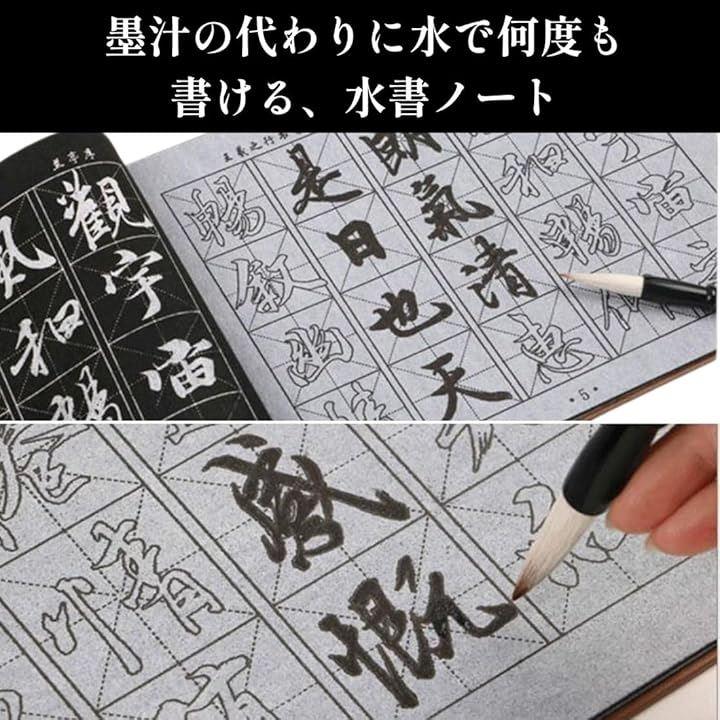 墨汁の代わりに水で何度も
書ける、水書ノート
兰亭序
王羲之行书
宇宙
和暢仰
朗氣清惠
是日也天
暢叙幽情
5
觀宇宙
風和暢
感慨
情